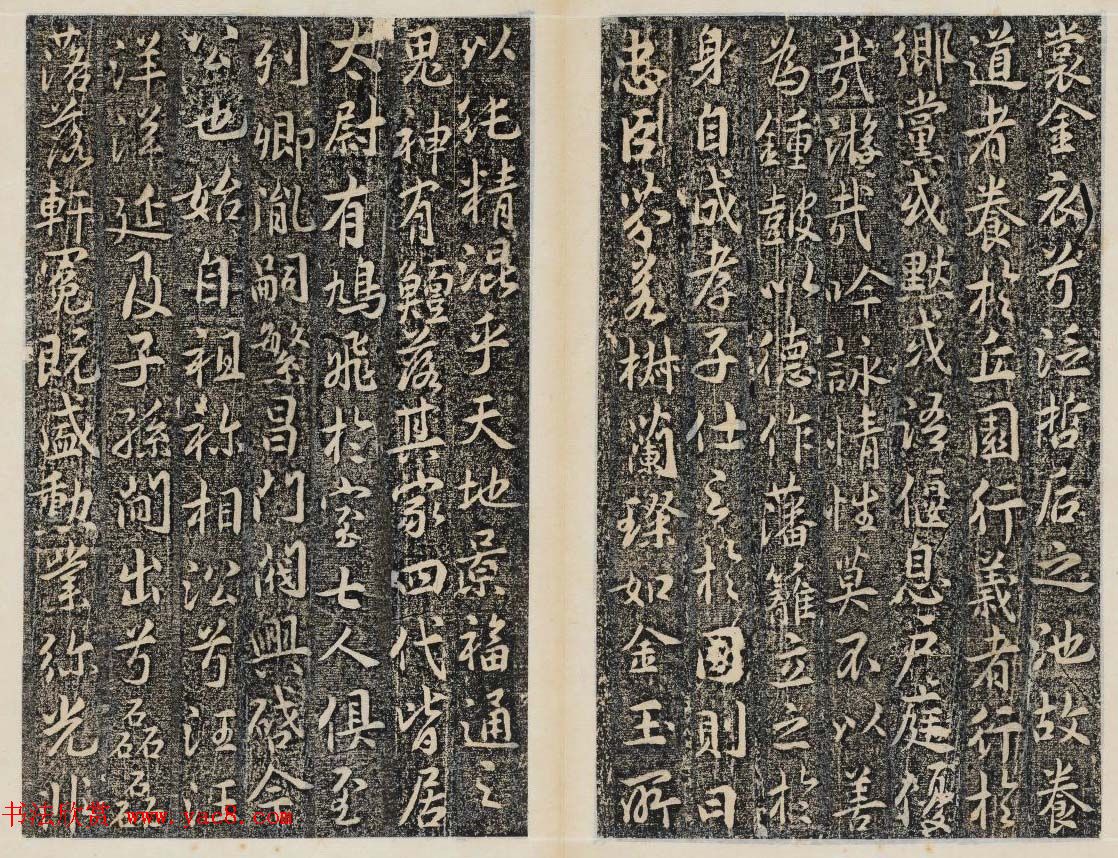 裳金衣兮泛哲后之池故養
道者養於丘園行義者行於
鄉黨或默或語偃息戶庭優
哉游哉吟詠情性莫不以善
為鍾鼓以德作藩籬立之於
身自成孝子仕之於國則曰
忠臣芬若樹蘭璨如金玉所
以純精混乎天地景福通之
鬼神有鱣落其家四代皆居
太尉有鳩飛於室七人俱至
列卿胤嗣繁昌門閥興啓令
公也始自祖祢相沿兮汪汪
洋洋延及子孫間出兮磊磊
落落軒冕既盛勳業弥光非
书法欣赏 www.yac8.com